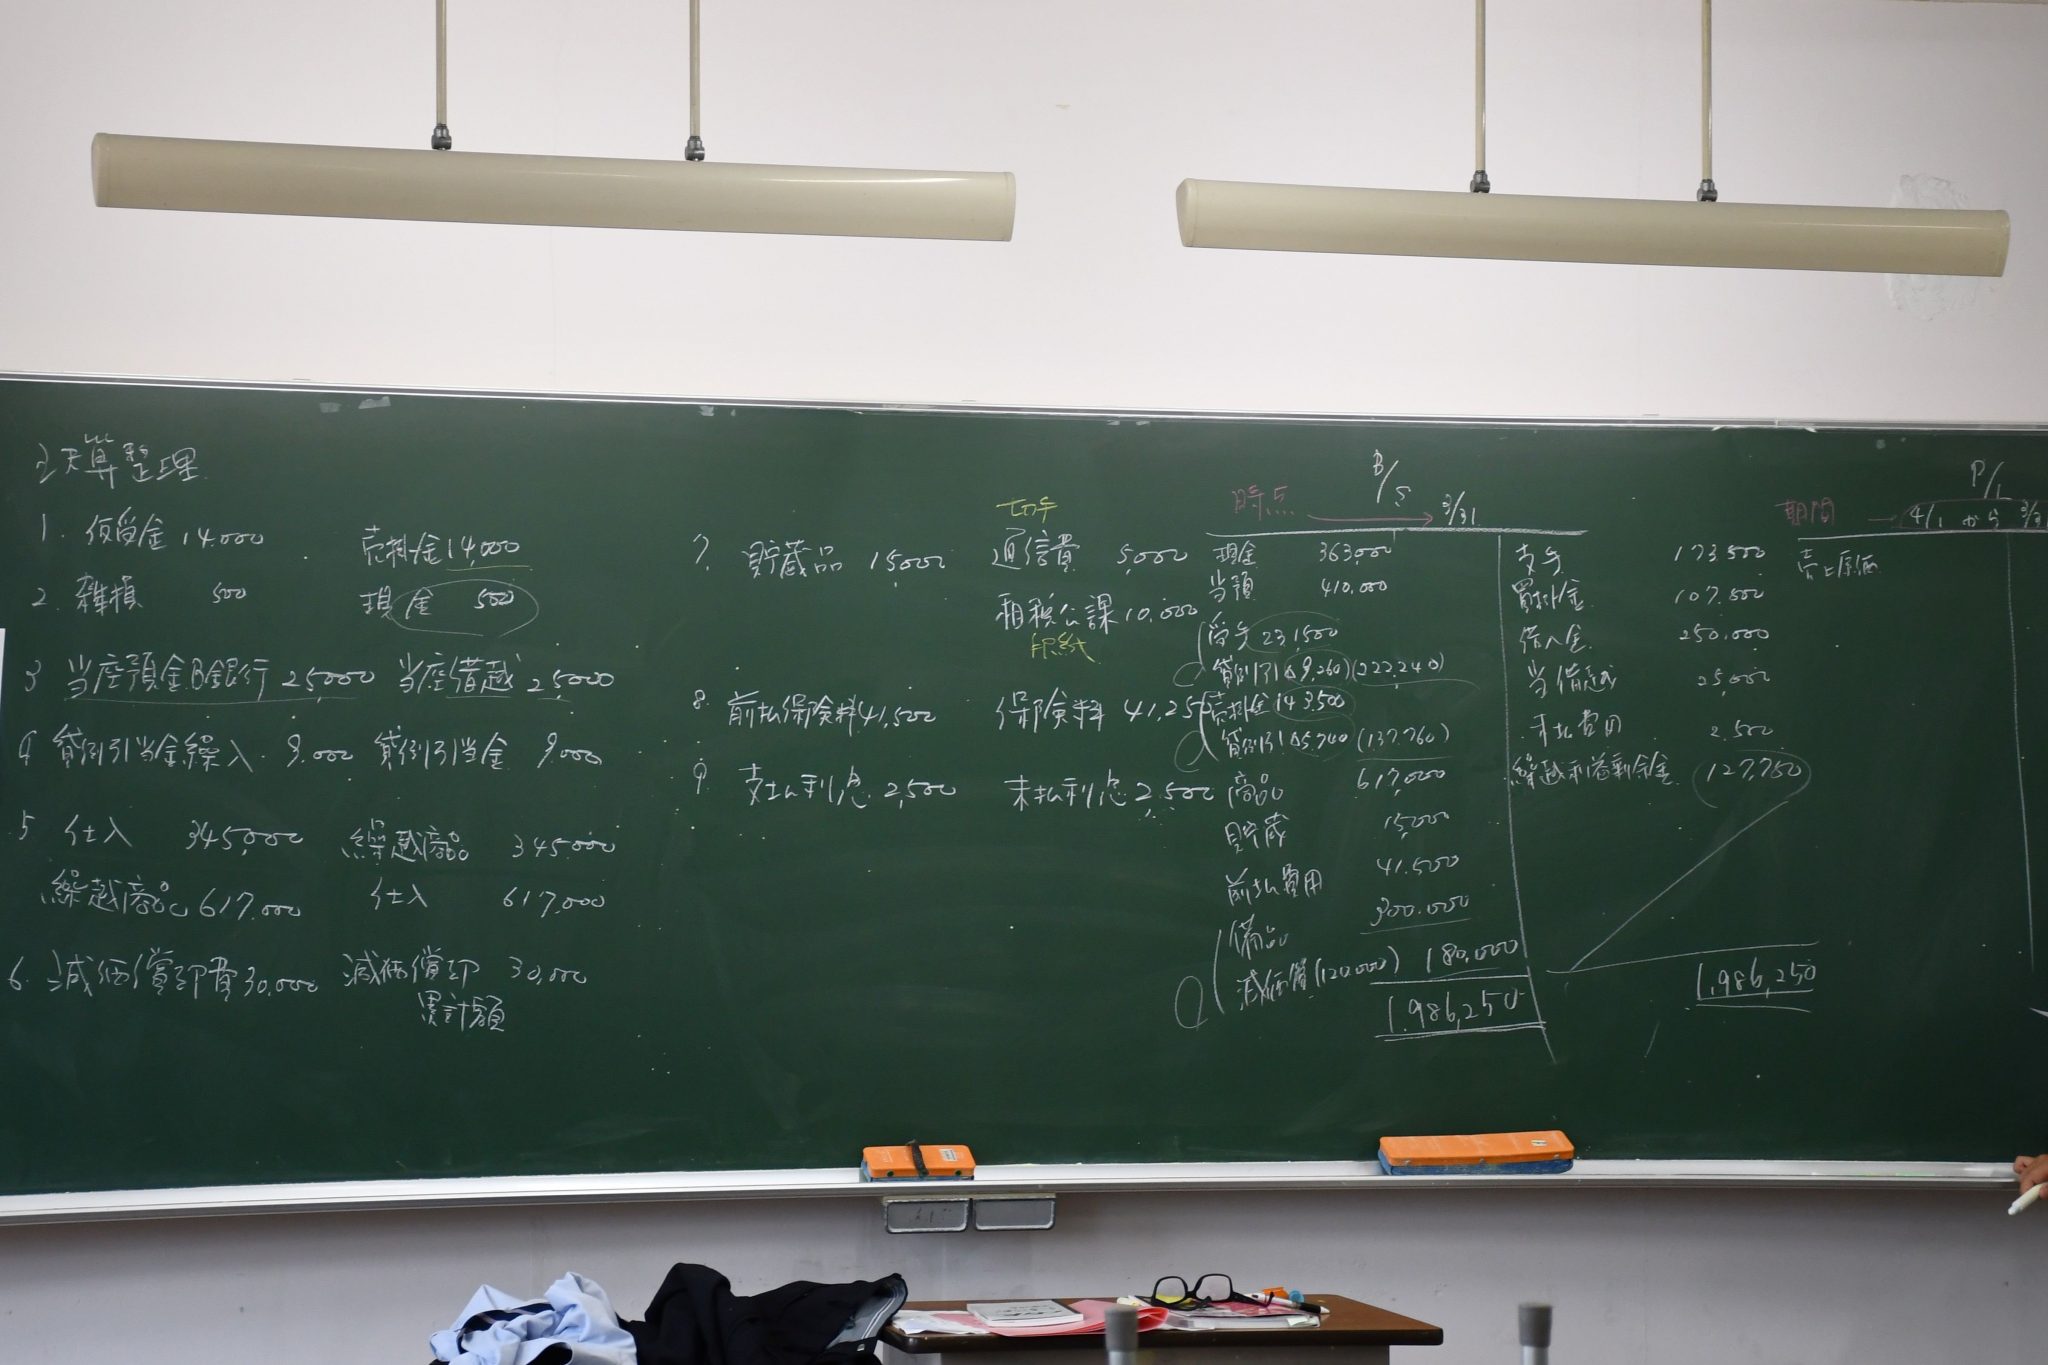 決算整理
1. 仮受金 14,000 売掛金 14,000
2. 雑損 500 現金 500
3 当座預金B銀行 25,000 当座借越 25,000
4 貸倒引当金繰入 9,000 貸倒引当金 9,000
5 仕入 345,000 繰越商品 345,000
繰越商品 617,000 仕入 617,000
6. 減価償却費 30,000 減価償却 30,000
累計額
切手
7. 貯蔵品 15,000 通信費 5,000
租税公課 10,000
印紙
8. 前払保険料 41,500 保険料 41,250
9. 支払利息 2,500 未払利息 2,500
B/S
時点 → 3/31
現金 363,000
当預 410,000
受手 231,500
貸倒引 △9,260 (222,240)
売掛金 143,500
貸倒引 △5,740 (137,760)
商品 617,000
貯蔵 15,000
前払費用 41,500
備品 300,000
減価償 (120,000) 180,000
1,986,250
支手 173,500
買掛金 107,500
借入金 250,000
当借越 25,000
未払費用 2,500
繰越利益剰余金 127,750
1,986,250
P/L
期間 → 4/1 から 3/31
売上原価